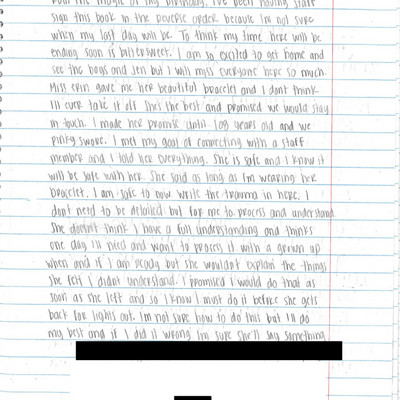 the magic of my birthday. I've been having staff
sign this book in the reverse order because I'm not sure
when my last day will be. To think my time here will be
ending soon is bittersweet. I am so excited to get home and
see the boys and Jen but I will miss everyone here so much.
Miss Erin gave me her beautiful bracelet and I dont think
Ill ever take it off. Shes the best and promised we would stay
in touch. I made her promise until 108 years old and we
pinky swore. I met my goal of connecting with a staff
member and I told her everything. She is safe and I know it
will be safe with her. She said as long as I'm wearing her
bracelet. I am safe to now write the trauma in here. I
don't need to be detailed but for me to process and understand.
She doesnt think I have a full understanding and thinks
one day Ill need and want to process it with a grown up
when and if I am ready but she wouldnt explain the things
she felt I didnt understand. I promised I would do that as
soon as she left and so I know I must do it before she gets
back for lights out. Im not sure how to do this but Ill do
my best and if I did it wrong Im sure she'll say something